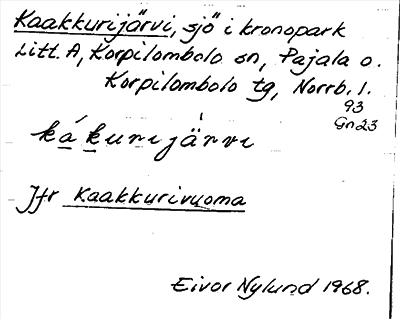 Kaakkurijärvi, sjö i kronopark
Litt. A, Korpilombolo sn, Pajala o.
Korpilombolo tg, Norrb. l.
93
Gn 23
ká̱ḵurijä̀rvi
Jfr Kaakkurivuoma
Eivor Nylund 1968.